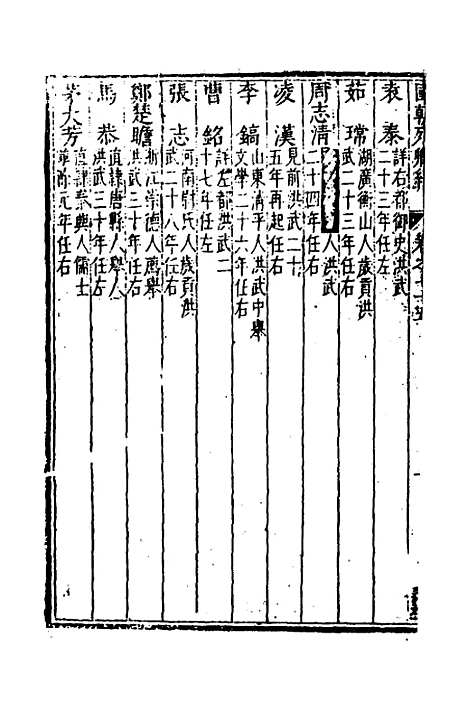 國朝列卿紀
袁泰 詳右都御史洪武
二十三年任左
茹瑺 湖廣衡山人歲貢洪
武二十三年任右
周志清 人洪武
二十四年任右
凌漢 見前洪武二十
五年再起任右
李鎬 山東清平人洪武中舉
文學二十六年任右
曹銘 詳左都洪武二
十七年任左
張志 河南尉氏人歲貢洪
武二十八年任右
鄭楚瞻 浙江崇德人薦舉
洪武三十年任右
馬恭 直隸唐縣人舉人
洪武三十年任左
茅大芳 直隸泰興人儒士
革除元年任右